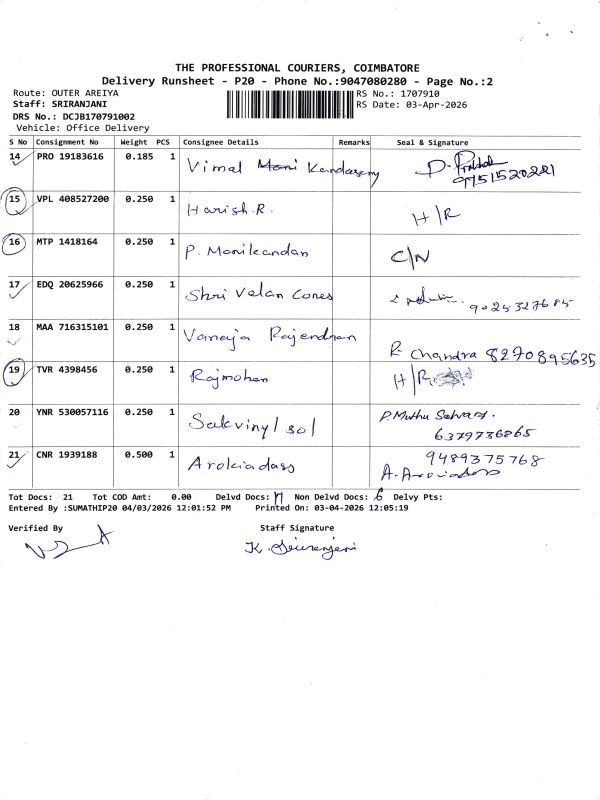 THE PROFESSIONAL COURIERS, COIMBATORE
Delivery Runsheet - P20 - Phone No.:9047080280 - Page No.:2
Route: OUTER AREIYA
Staff: SRIRANJANI
DRS No.: DCJB170791002
Vehicle: Office Delivery
RS No.: 1707910
RS Date: 03-Apr-2026
S No Consignment No Weight PCS Consignee Details Remarks Seal & Signature
14 PRO 19183616 0.185 1 Vimal Kandasamy 9751520221
15 VPL 408527200 0.250 1 Harish.R. H/R
16 MTP 1418164 0.250 1 P. Manikandan C/N
17 EDQ 20625966 0.250 1 Shri Velan Cones
18 MAA 716315101 0.250 1 Vanaja Rajendran R. Chandra 8270895635
19 TVR 4398456 0.250 1 Rajmohan H/R
20 YNR 530057116 0.250 1 Sakvinyl sol P. Muthu Selvar. 6379736865
21 CNR 1939188 0.500 1 Arokiadass 9489375768
Tot Docs: 21 Tot COD Amt: 0.00 Delvd Docs: Non Delvd Docs: 6 Delvy Pts:
Entered By :SUMATHIP20 04/03/2026 12:01:52 PM Printed On: 03-04-2026 12:05:19
Verified By Staff Signature